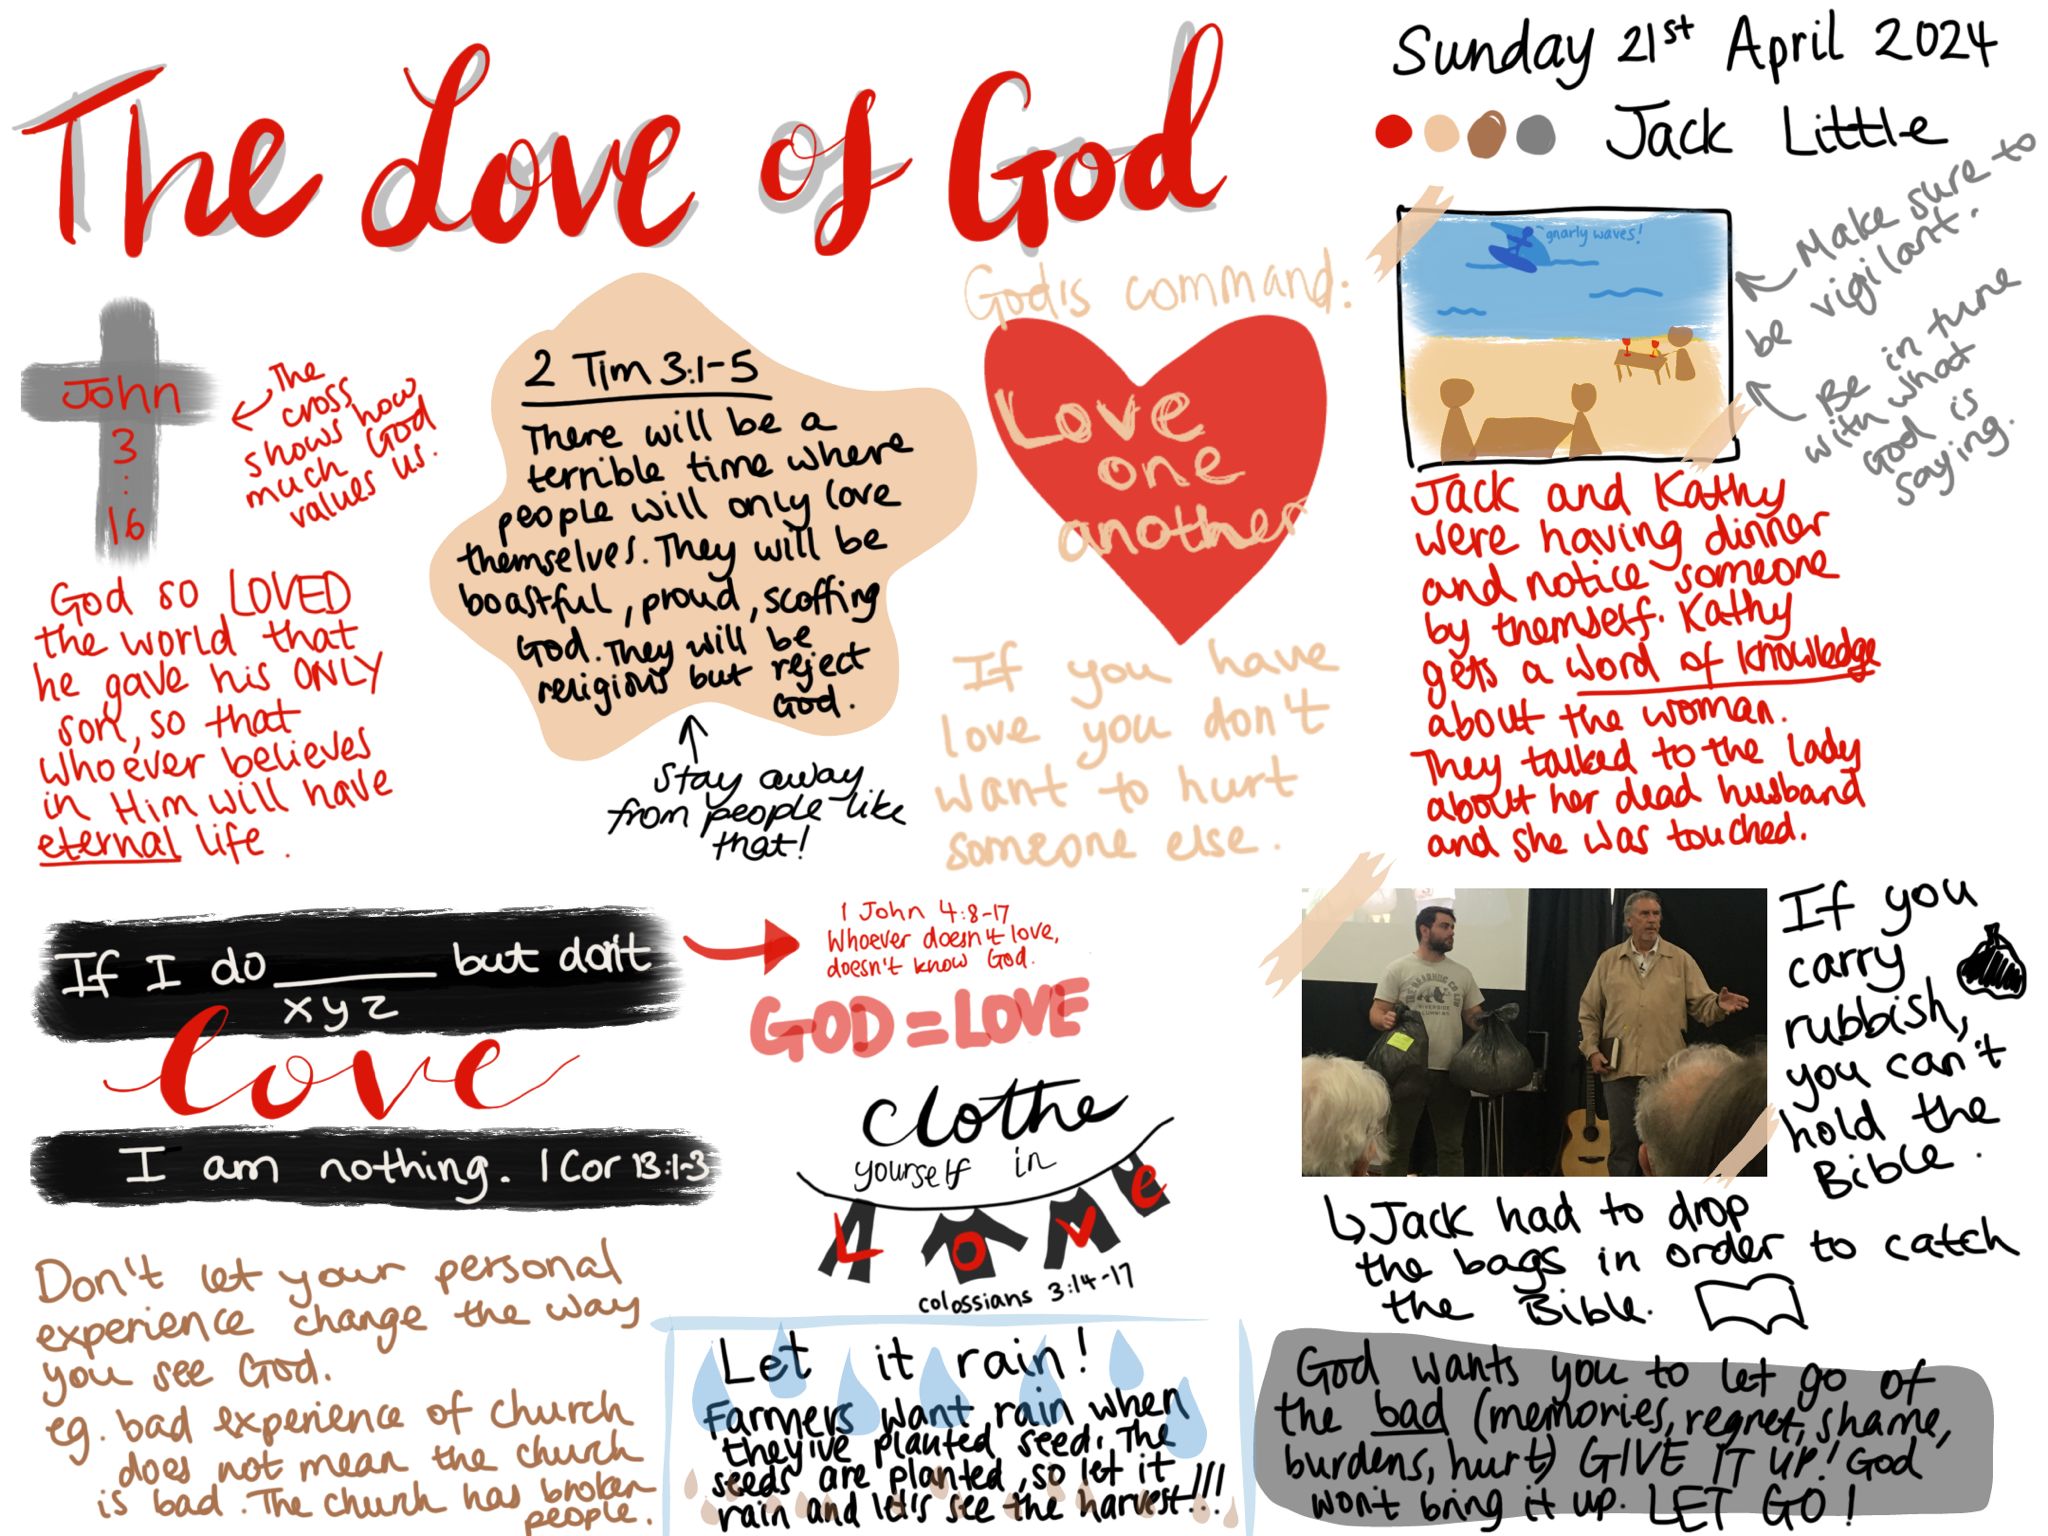 The Love of God
Sunday 21st April 2024
Jack Little
John
3
:
16
The
cross
shows how
much God
values us.
God so LOVED
the world that
he gave his ONLY
son, so that
whoever believes
in Him will have
eternal life.
2 Tim 3:1-5
There will be a
terrible time where
people will only love
themselves. They will be
boastful, proud, scoffing
God. They will be
religious but reject
God.
Stay away
from people like
that!
God's command:
Love
one
another
If you have
love you don't
want to hurt
someone else.
gnarly waves!
Make sure to
be vigilant.
Be in tune
with what
God is
saying.
Jack and Kathy
were having dinner
and notice someone
by themself. Kathy
gets a word of knowledge
about the woman.
They talked to the lady
about her dead husband
and she was touched.
If I do ______ but don't
xyz
love
I am nothing. 1 Cor 13:1-3
1 John 4:8-17
Whoever doesn't love,
doesn't know God.
GOD = LOVE
clothe
yourself in
LOVe
colossians 3:14-17
THE BEARHUG CO
RIVERSIDE
If you
carry
rubbish,
you can't
hold the
Bible.
Jack had to drop
the bags in order to catch
the Bible.
Don't let your personal
experience change the way
you see God.
eg. bad experience of church
does not mean the church
is bad. The church has broken
people.
Let it rain!
Farmers want rain when
they've planted seed. The
seeds are planted, so let it
rain and let's see the harvest!!!
God wants you to let go of
the bad (memories, regret, shame,
burdens, hurt) GIVE IT UP! God
won't bring it up. LET GO!